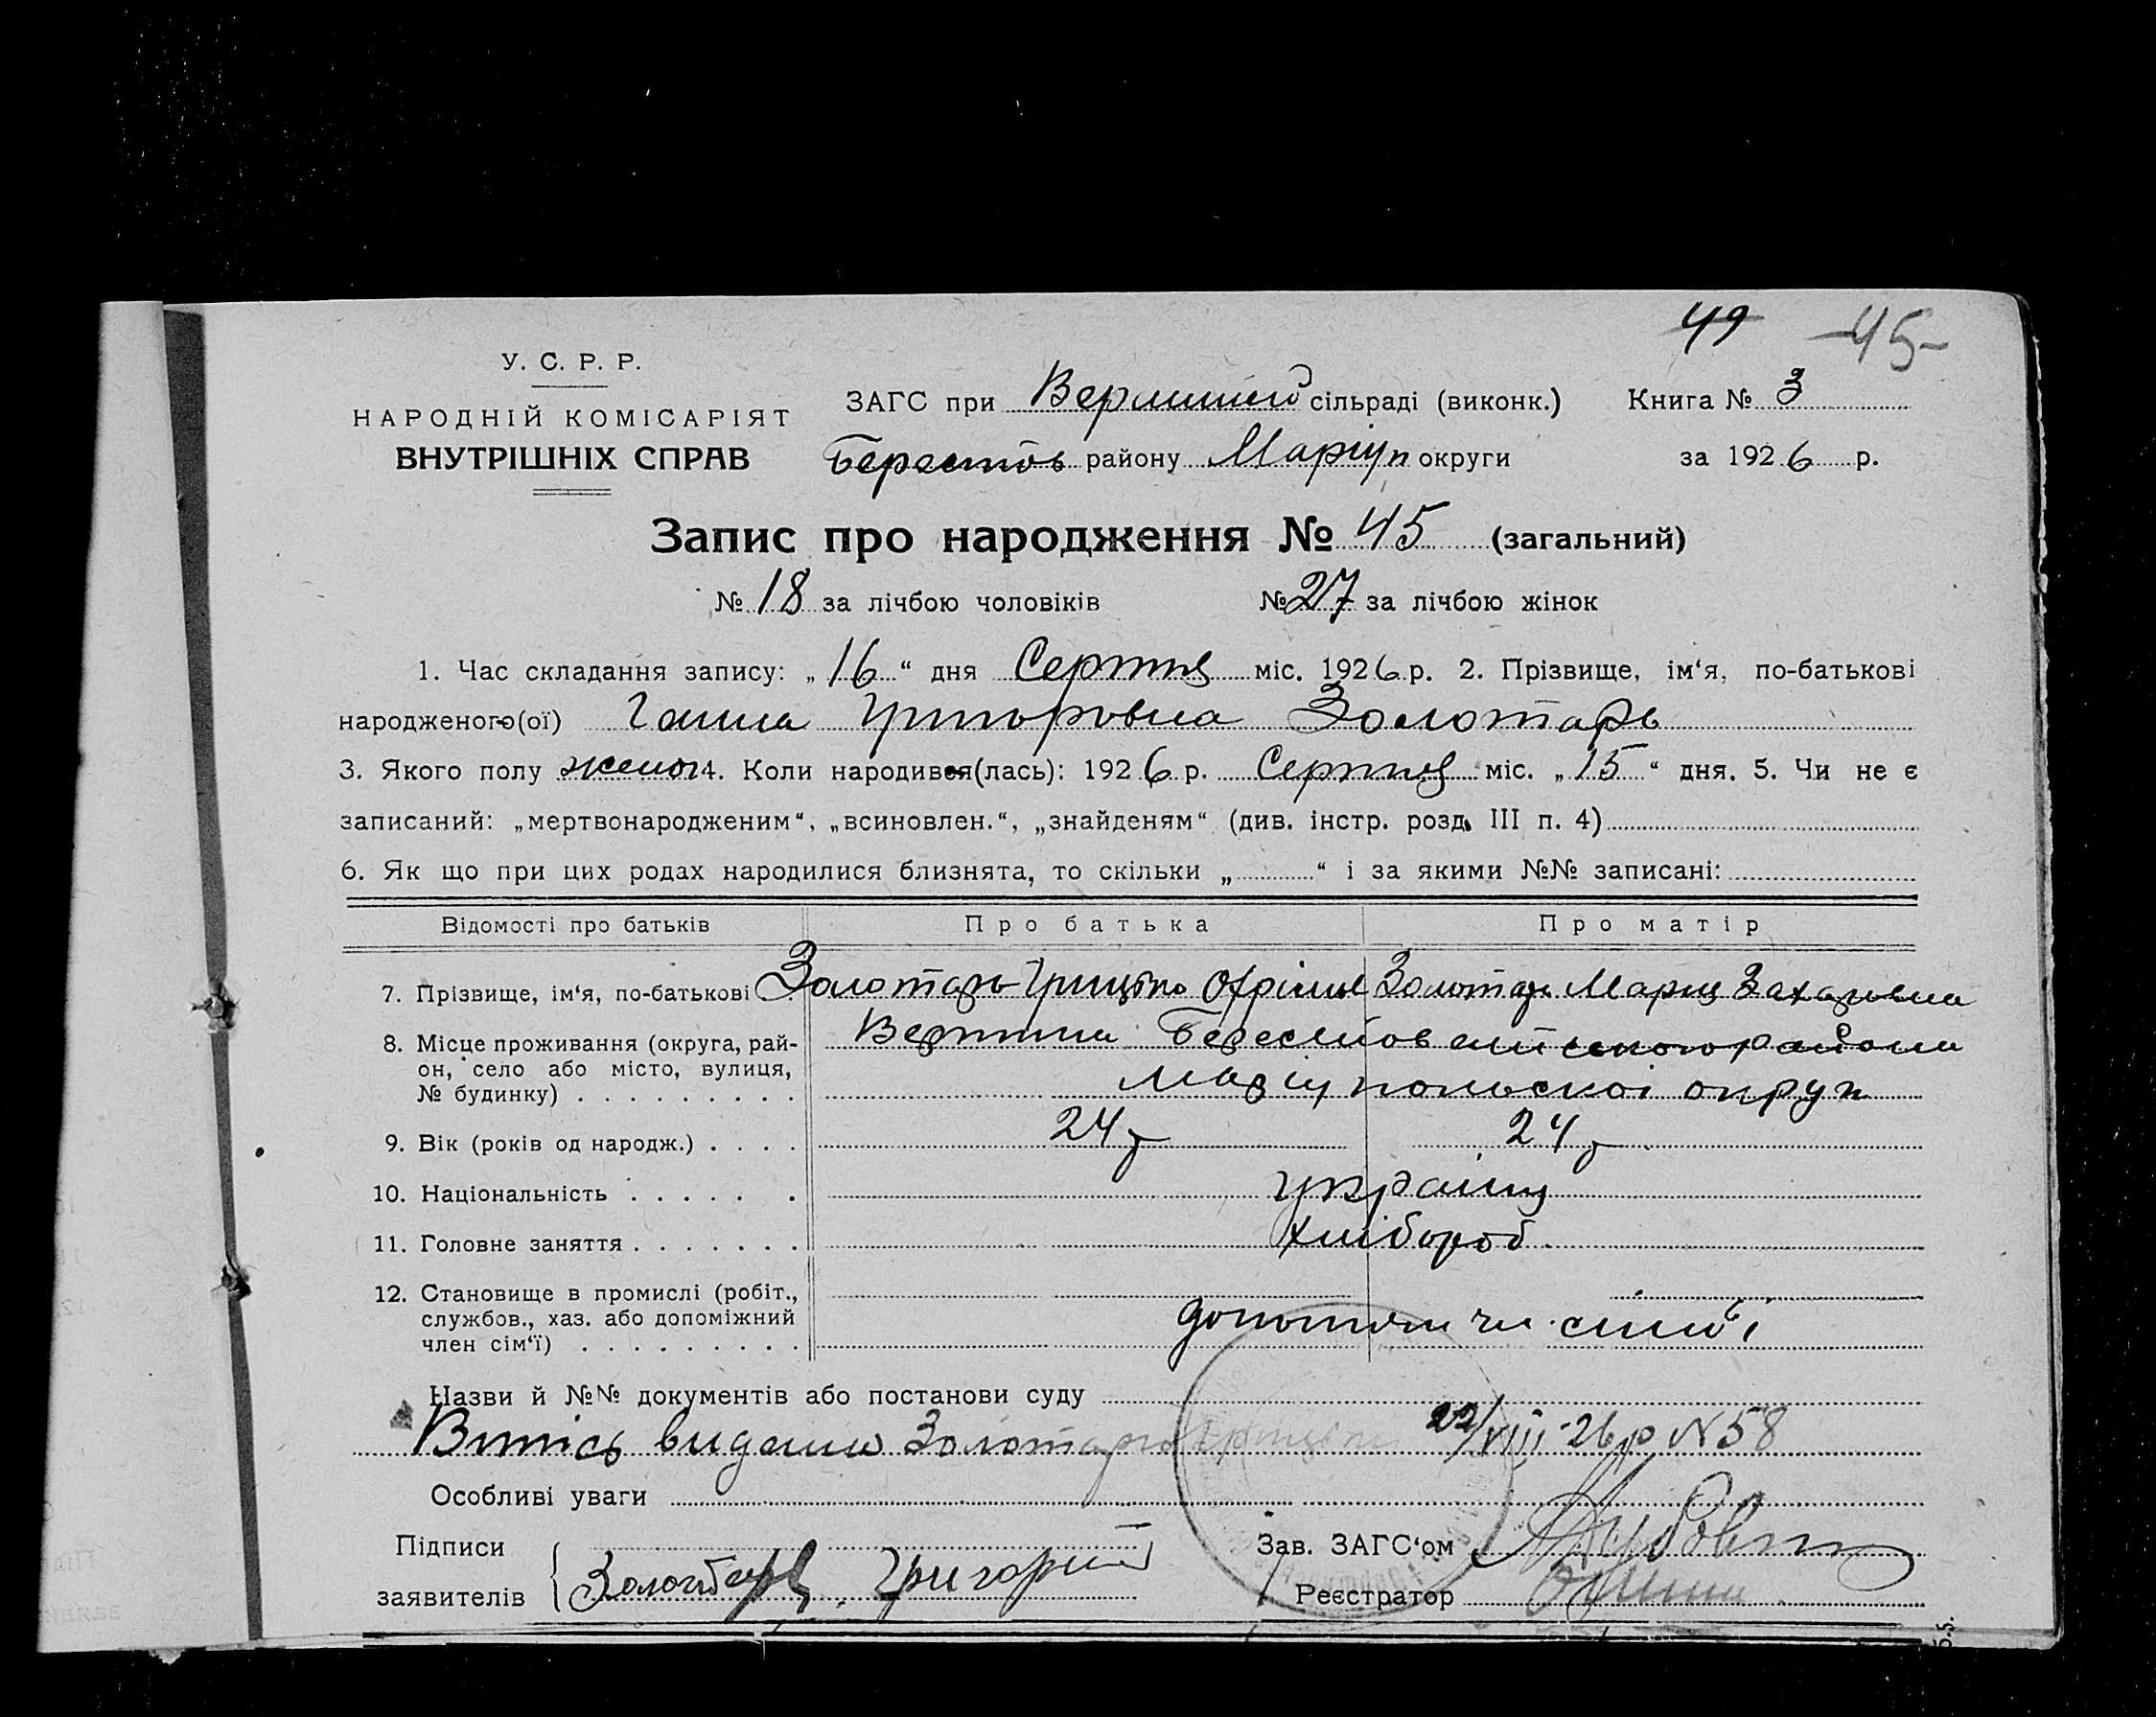 49 45
У. С. Р. Р.
НАРОДНІЙ КОМІСАРІЯТ
ВНУТРІШНІХ СПРАВ
ЗАГС при сільраді (виконк.) Книга № 3
Берестов району Маріуп округи за 1926 р.
Запис про народження № 45 (загальний)
№ 18 за лічбою чоловіків № 27 за лічбою жінок
1. Час складання запису: „16“ дня Серпня міс. 1926 р. 2. Прізвище, ім‘я, по-батькові
народженого(ої) Ганна Григоровна Золотарь
3. Якого полу женог 4. Коли народився(лась): 1926 р. Серпня міс. „15“ дня. 5. Чи не є
записаний: „мертвонародженим“, „всиновлен.“, „знайденям“ (див. інстр. розд. III п. 4)
6. Як що при цих родах народилися близнята, то скільки „ “ і за якими №№ записані:
Відомості про батьків Про батька Про матір
7. Прізвище, ім‘я, по-батькові Золотарь Грицько Золотарь Мария Захаровна
8. Місце проживання (округа, рай-
он, село або місто, вулиця,
№ будинку)
Маріупольскоі округи
9. Вік (років од народж.) 24 р 24 р
10. Національність україну
11. Головне заняття хлібороб
12. Становище в промислі (робіт.,
службов., хаз. або допоміжний
член сім‘ї)
чл. сім'ї
Назви й №№ документів або постанови суду
Витісь видано Золотарю 22/VIII-26 р N 58
Особливі уваги
Підписи
заявителів Золотарь Григорий
Зав. ЗАГС‘ом
Реєстратор